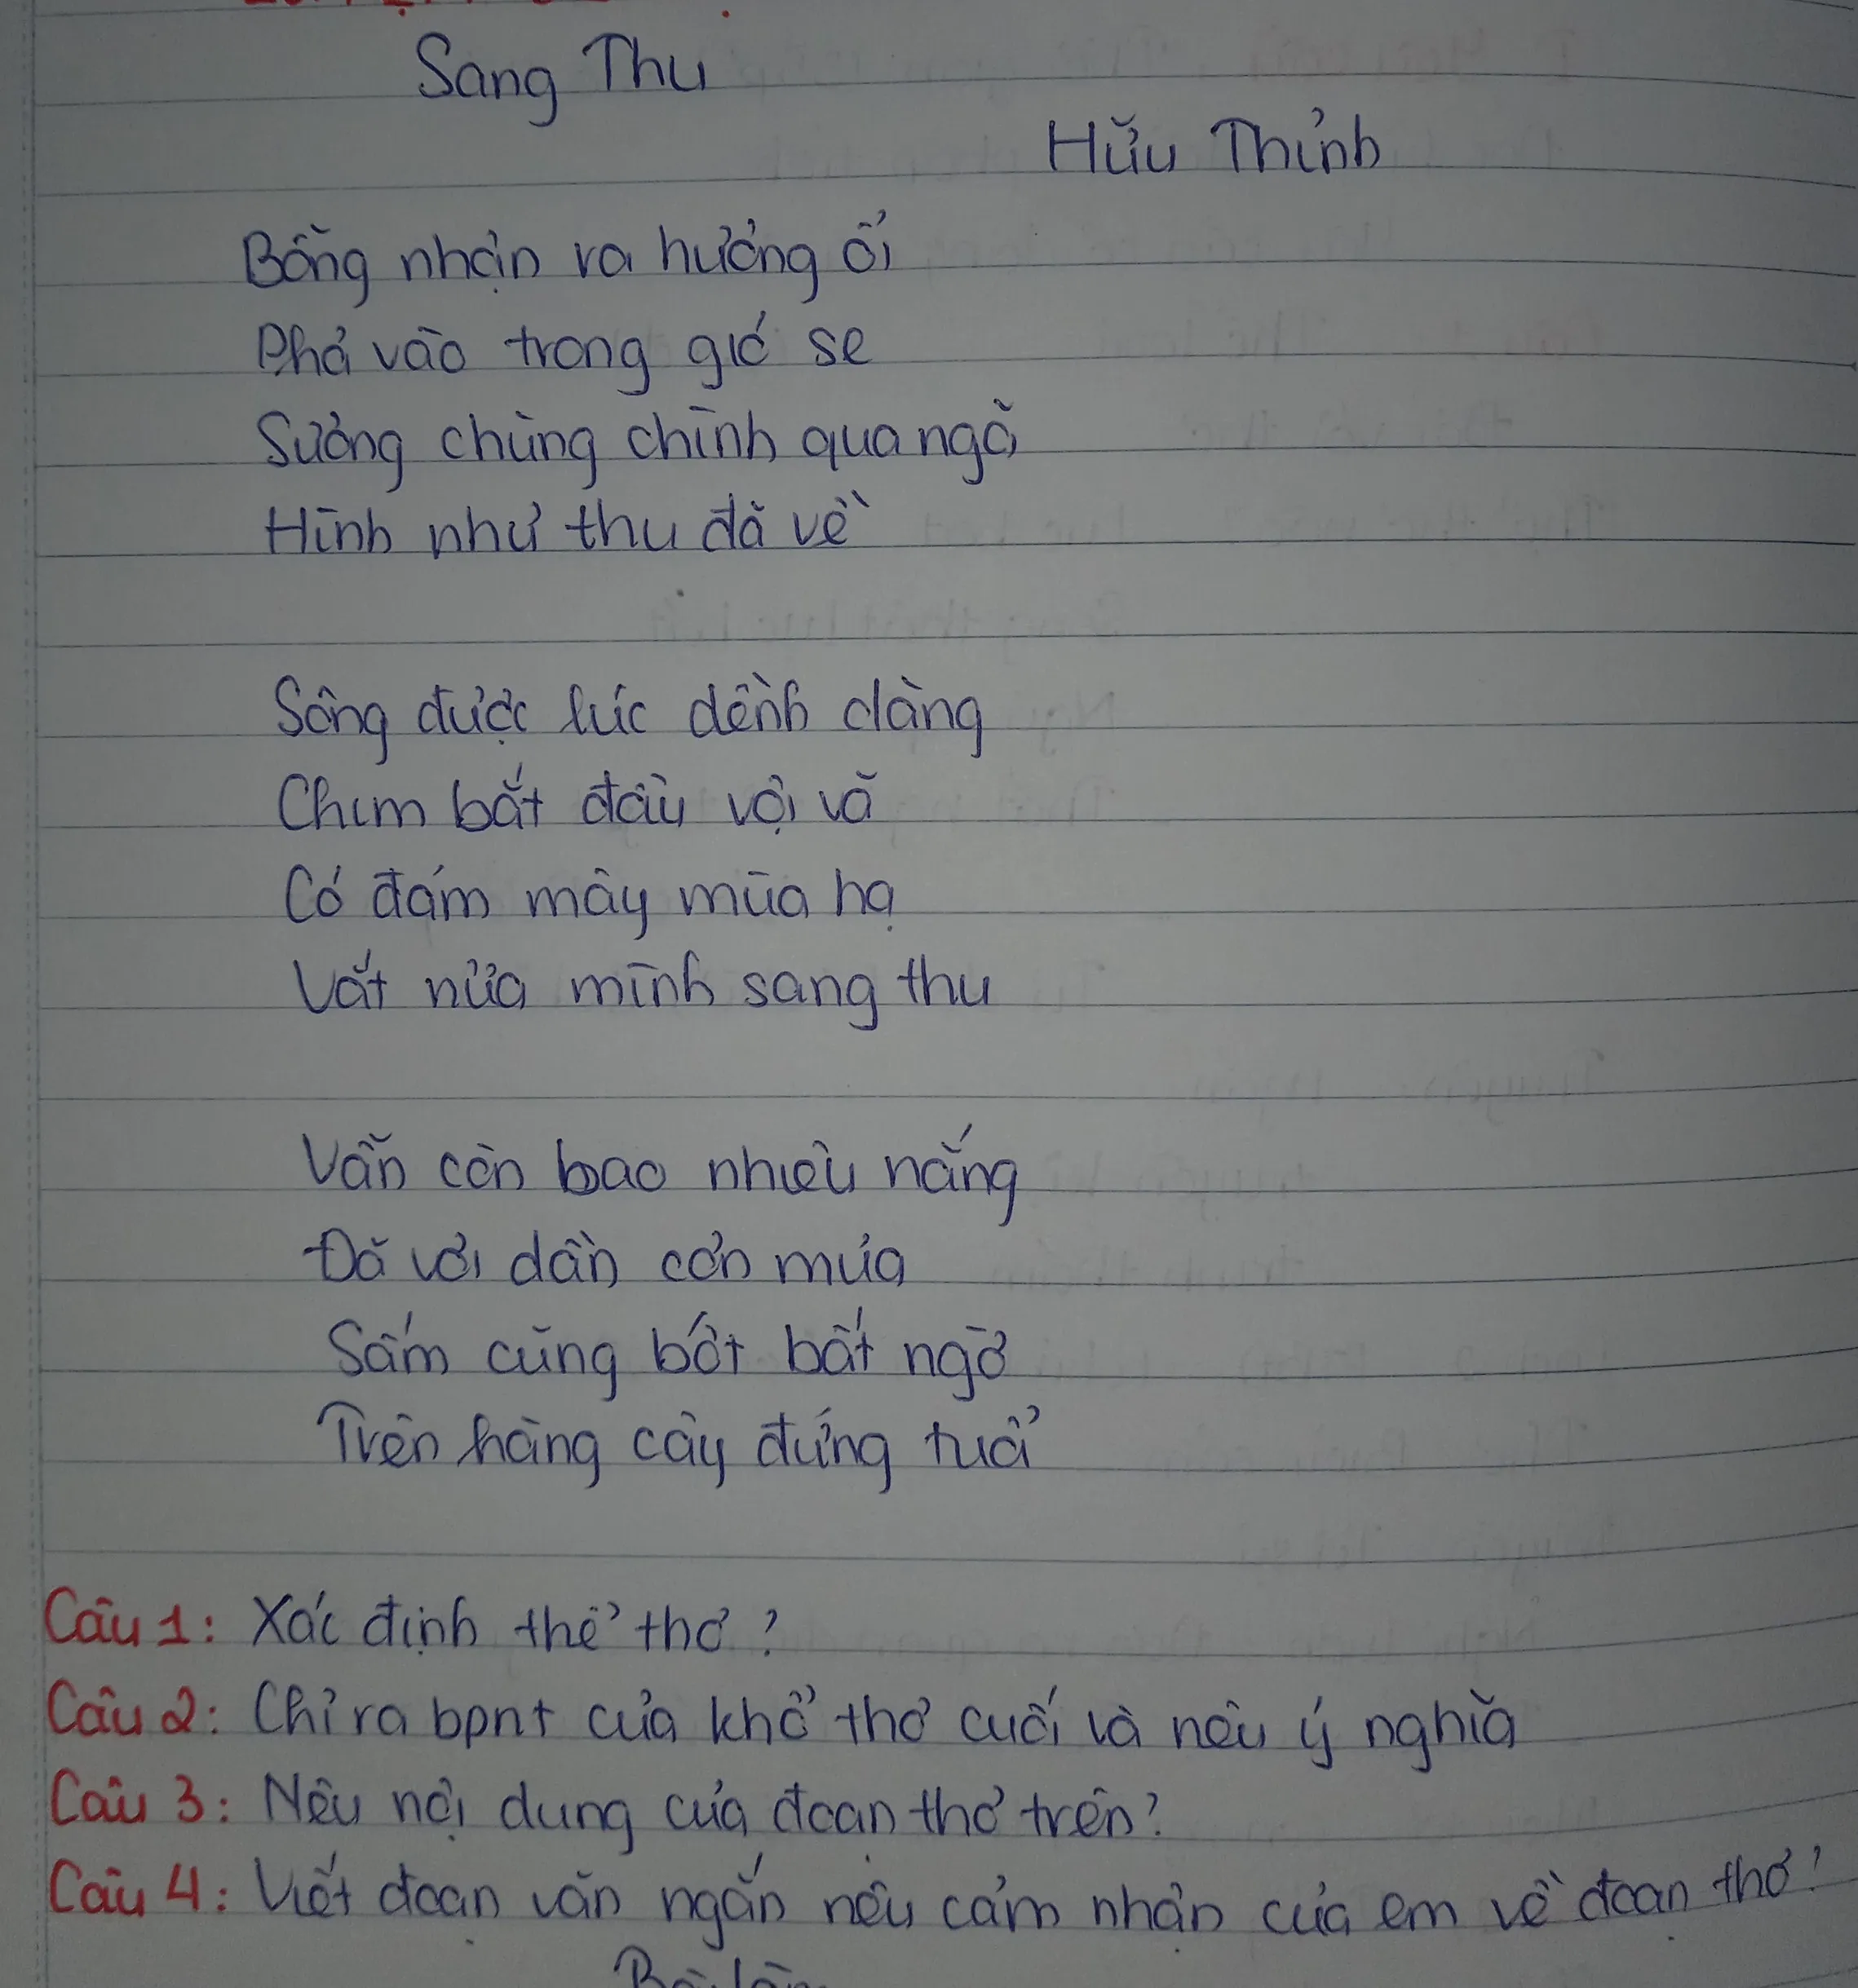 Sang Thu
Hữu Thỉnh
Bỗng nhận ra hương ổi
Phả vào trong gió se
Sương chùng chình qua ngõ
Hình như thu đã về
Sông được lúc dềnh dàng
Chim bắt đầu vội vã
Có đám mây mùa hạ
Vắt nửa mình sang thu
Vẫn còn bao nhiêu nắng
Đã vơi dần cơn mưa
Sấm cũng bớt bất ngờ
Trên hàng cây đứng tuổi
Câu 1: Xác định thể thơ?
Câu 2: Chỉ ra bpnt của khổ thơ cuối và nêu ý nghĩa
Câu 3: Nêu nội dung của đoạn thơ trên?
Câu 4: Viết đoạn văn ngắn nêu cảm nhận của em về đoạn thơ?